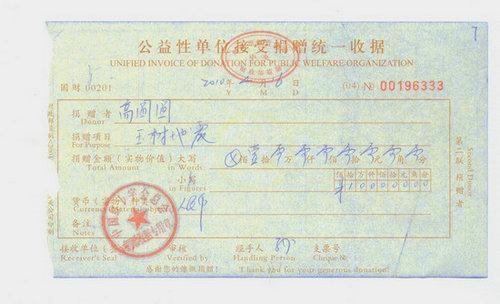 公益性单位接受捐赠统一收据
UNIFIED INVOICE OF DONATION FOR PUBLIC WELFARE ORGANIZATION
国财 00201 2010 年 月 日 (04) № 00196333
Y M D
捐赠者 高圆圆
Donor
捐赠项目 玉树地震
For Purpose
捐赠金额(实物价值)大写 ⊗佰壹拾零万零仟零佰零拾零元零角零分
Total Amount in Words
小写 佰十万仟佰拾元角分
in Figures ¥10000000
货币(实物)种类 人民币
备注
Notes
接收单位 审核 经手人 支票号
Receiver's Seal Verified by Handling Person Cheque №
感谢您的慷慨捐赠! Thank you for your generous donation!
第二联 捐赠者
Second Donor